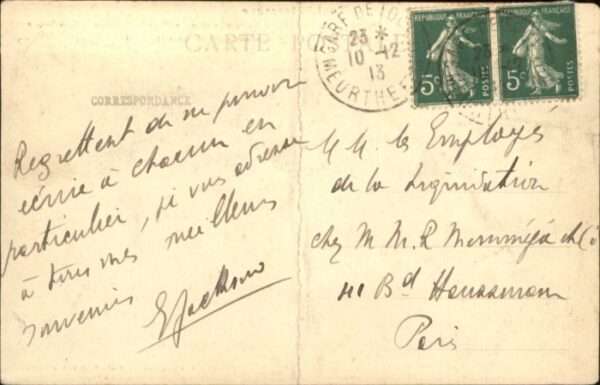 CARTE POSTALE
CORRESPONDANCE
GARE DE
23 *
10-12
13
MEURTHE
REPUBLIQUE FRANÇAISE
5c
POSTES
REPUBLIQUE FRANÇAISE
5c
POSTES
Regrettant de ne pouvoir
écrire à chacun en
particulier, je vous adresse
à tous mes meilleurs
souvenirs
M.M. les Employés
de la Liquidation
chez M M.R
41 Bd Haussmann
Paris